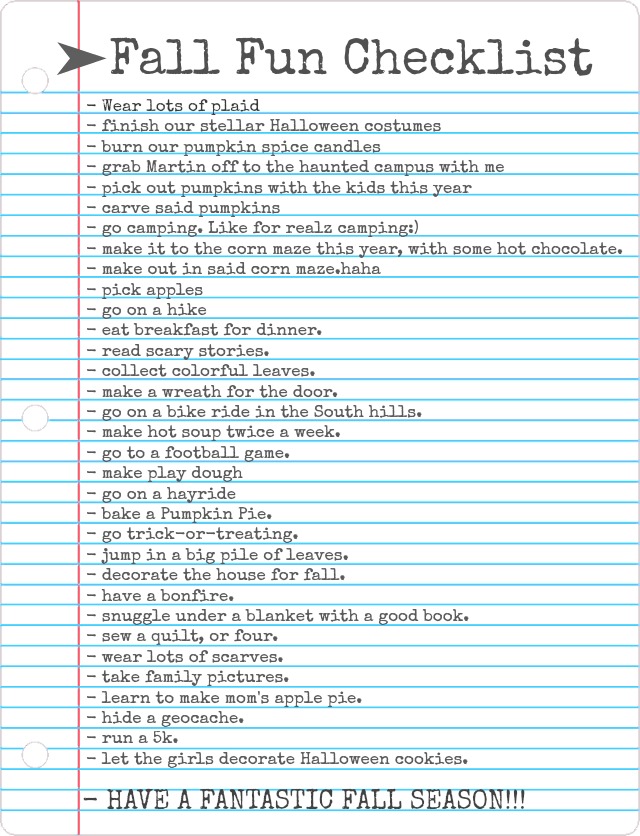 Fall Fun Checklist
- Wear lots of plaid
- finish our stellar Halloween costumes
- burn our pumpkin spice candles
- grab Martin off to the haunted campus with me
- pick out pumpkins with the kids this year
- carve said pumpkins
- go camping. Like for realz camping:)
- make it to the corn maze this year, with some hot chocolate.
- make out in said corn maze.haha
- pick apples
- go on a hike
- eat breakfast for dinner.
- read scary stories.
- collect colorful leaves.
- make a wreath for the door.
- go on a bike ride in the South hills.
- make hot soup twice a week.
- go to a football game.
- make play dough
- go on a hayride
- bake a Pumpkin Pie.
- go trick-or-treating.
- jump in a big pile of leaves.
- decorate the house for fall.
- have a bonfire.
- snuggle under a blanket with a good book.
- sew a quilt, or four.
- wear lots of scarves.
- take family pictures.
- learn to make mom's apple pie.
- hide a geocache.
- run a 5k.
- let the girls decorate Halloween cookies.
- HAVE A FANTASTIC FALL SEASON!!!